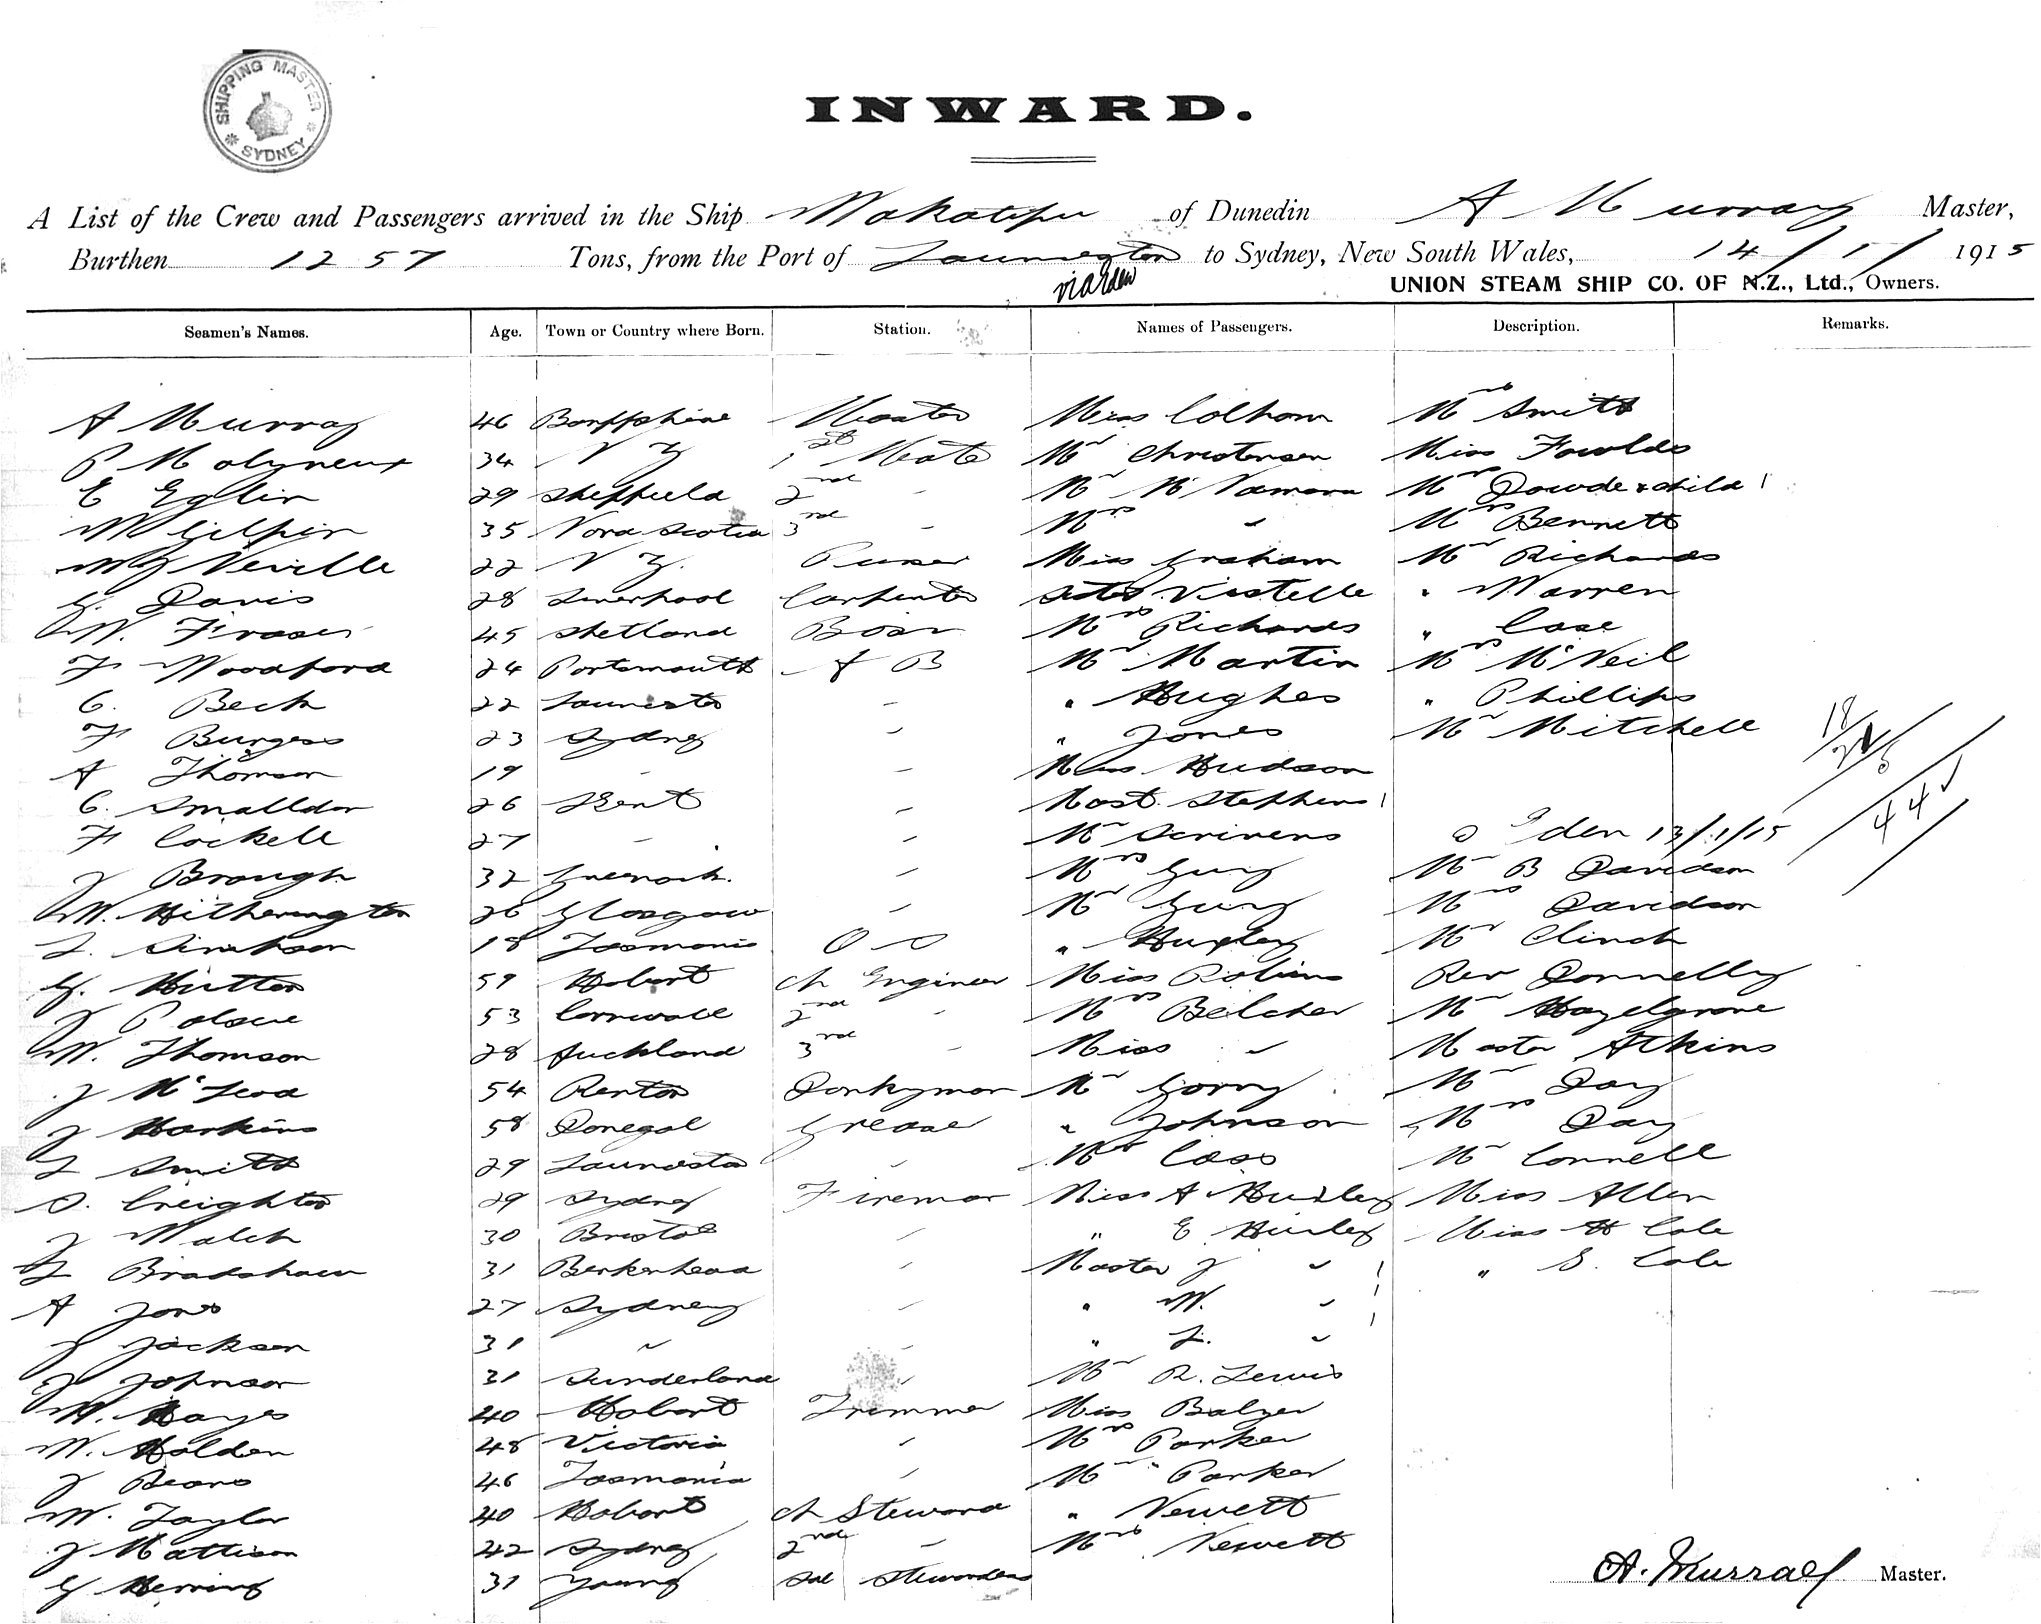 SHIPPING MASTER
SYDNEY
INWARD.
A List of the Crew and Passengers arrived in the Ship Wakatipu of Dunedin A Murray Master,
Burthen 1257 Tons, from the Port of Launceston to Sydney, New South Wales, 14/1/1915
via Eden UNION STEAM SHIP CO. OF N.Z., Ltd., Owners.
Seamen's Names. Age. Town or Country where Born. Station. Names of Passengers. Description. Remarks.
A Murray 46 Banffshire Master Miss Colhoun Mrs Smith
P Molyneux 34 N Z 1st Mate Mr Christensen Miss Fowlds
E Eglin 29 Sheffield 2nd - Mr McNamara Mrs Dowde & child 1
W Gilpin 35 Nova Scotia 3rd - Mrs " Mrs Bennett
Neville 22 N Z. Purser Miss Graham Mr Richards
G. Davis 28 Liverpool Carpenter Sister Vistelle " Warren
W. Fraser 45 Shetland Bosn Mrs Richards " Case
F Woodford 24 Portsmouth A B Mr Martin Mrs McNeil
C. Beck 22 Launceston - " Hughes " Phillips
F Burgess 23 Sydney - " Jones Mr Mitchell
A Thomson 19 - - Miss Hudson
C. Smalldon 26 Kent - Mast. Stephens 1
F Cockell 27 - - Mr Scrivens Eden 13/1/15
J Brough 32 Greenock - Mrs Gung Mr B Davidson
W. Hitherington 26 Glasgow - Mr Gung Mrs Davidson
L. Simkson 18 Tasmania O S " Huxley Mr Clinch
G. Hutton 59 Hobart Ch Engineer Miss Robins Rev Donnelly
J Polsue 53 Cornwall 2nd - Mrs Belcher Mr Hazelgrove
W. Thomson 28 Auckland 3rd - Miss " Master Atkins
J McLeod 54 Renton Donkyman Mr Gorry Mr Day
J Harkins 58 Donegal Greaser " Johnson Mrs Day
L Smith 29 Launceston - Mr Cass Mr Connell
O. Creighton 29 Sydney Fireman Miss A Huxley Miss Allen
J Walch 30 Bristol - " E Huxley Miss H Cole
Bradshaw 31 Berkenhead - Master J " 1 " S. Cole
A Jones 27 Sydney - " W. " 1
J Jackson 31 " - " L. " 1
J Johnson 31 Sunderland - Mr R. Lewis
W. Hayes 40 Hobart Trimmer Miss Balzer
W. Holden 48 Victoria - Mrs Parker
J Beard 46 Tasmania - Mr Parker
W. Taylor 40 Hobart Ch Steward " Newett
J Mattison 42 Sydney 2nd - Mrs Newett
G Herring 31 Young Sal Stewardess
A. Murray Master.